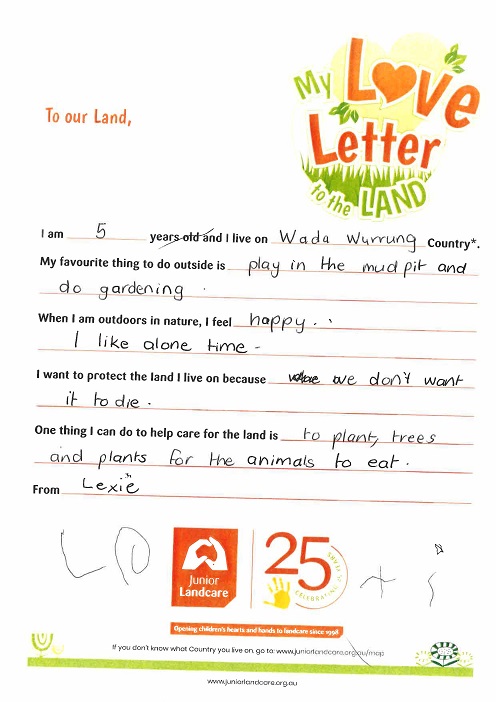 My Love
Letter
to the LAND
To our Land,
I am 5 years old and I live on Wada Wurrung Country*.
My favourite thing to do outside is play in the mud pit and
do gardening.
When I am outdoors in nature, I feel happy..
I like alone time -
I want to protect the land I live on because we don't want
it to die.
One thing I can do to help care for the land is to plant, trees
and plants for the animals to eat.
From Lexie
Junior
Landcare
25
CELEBRATING 25 YEARS
Opening children's hearts and hands to landcare since 1998
If you don't know what Country you live on, go to: www.juniorlandcare.org.au/map
www.juniorlandcare.org.au